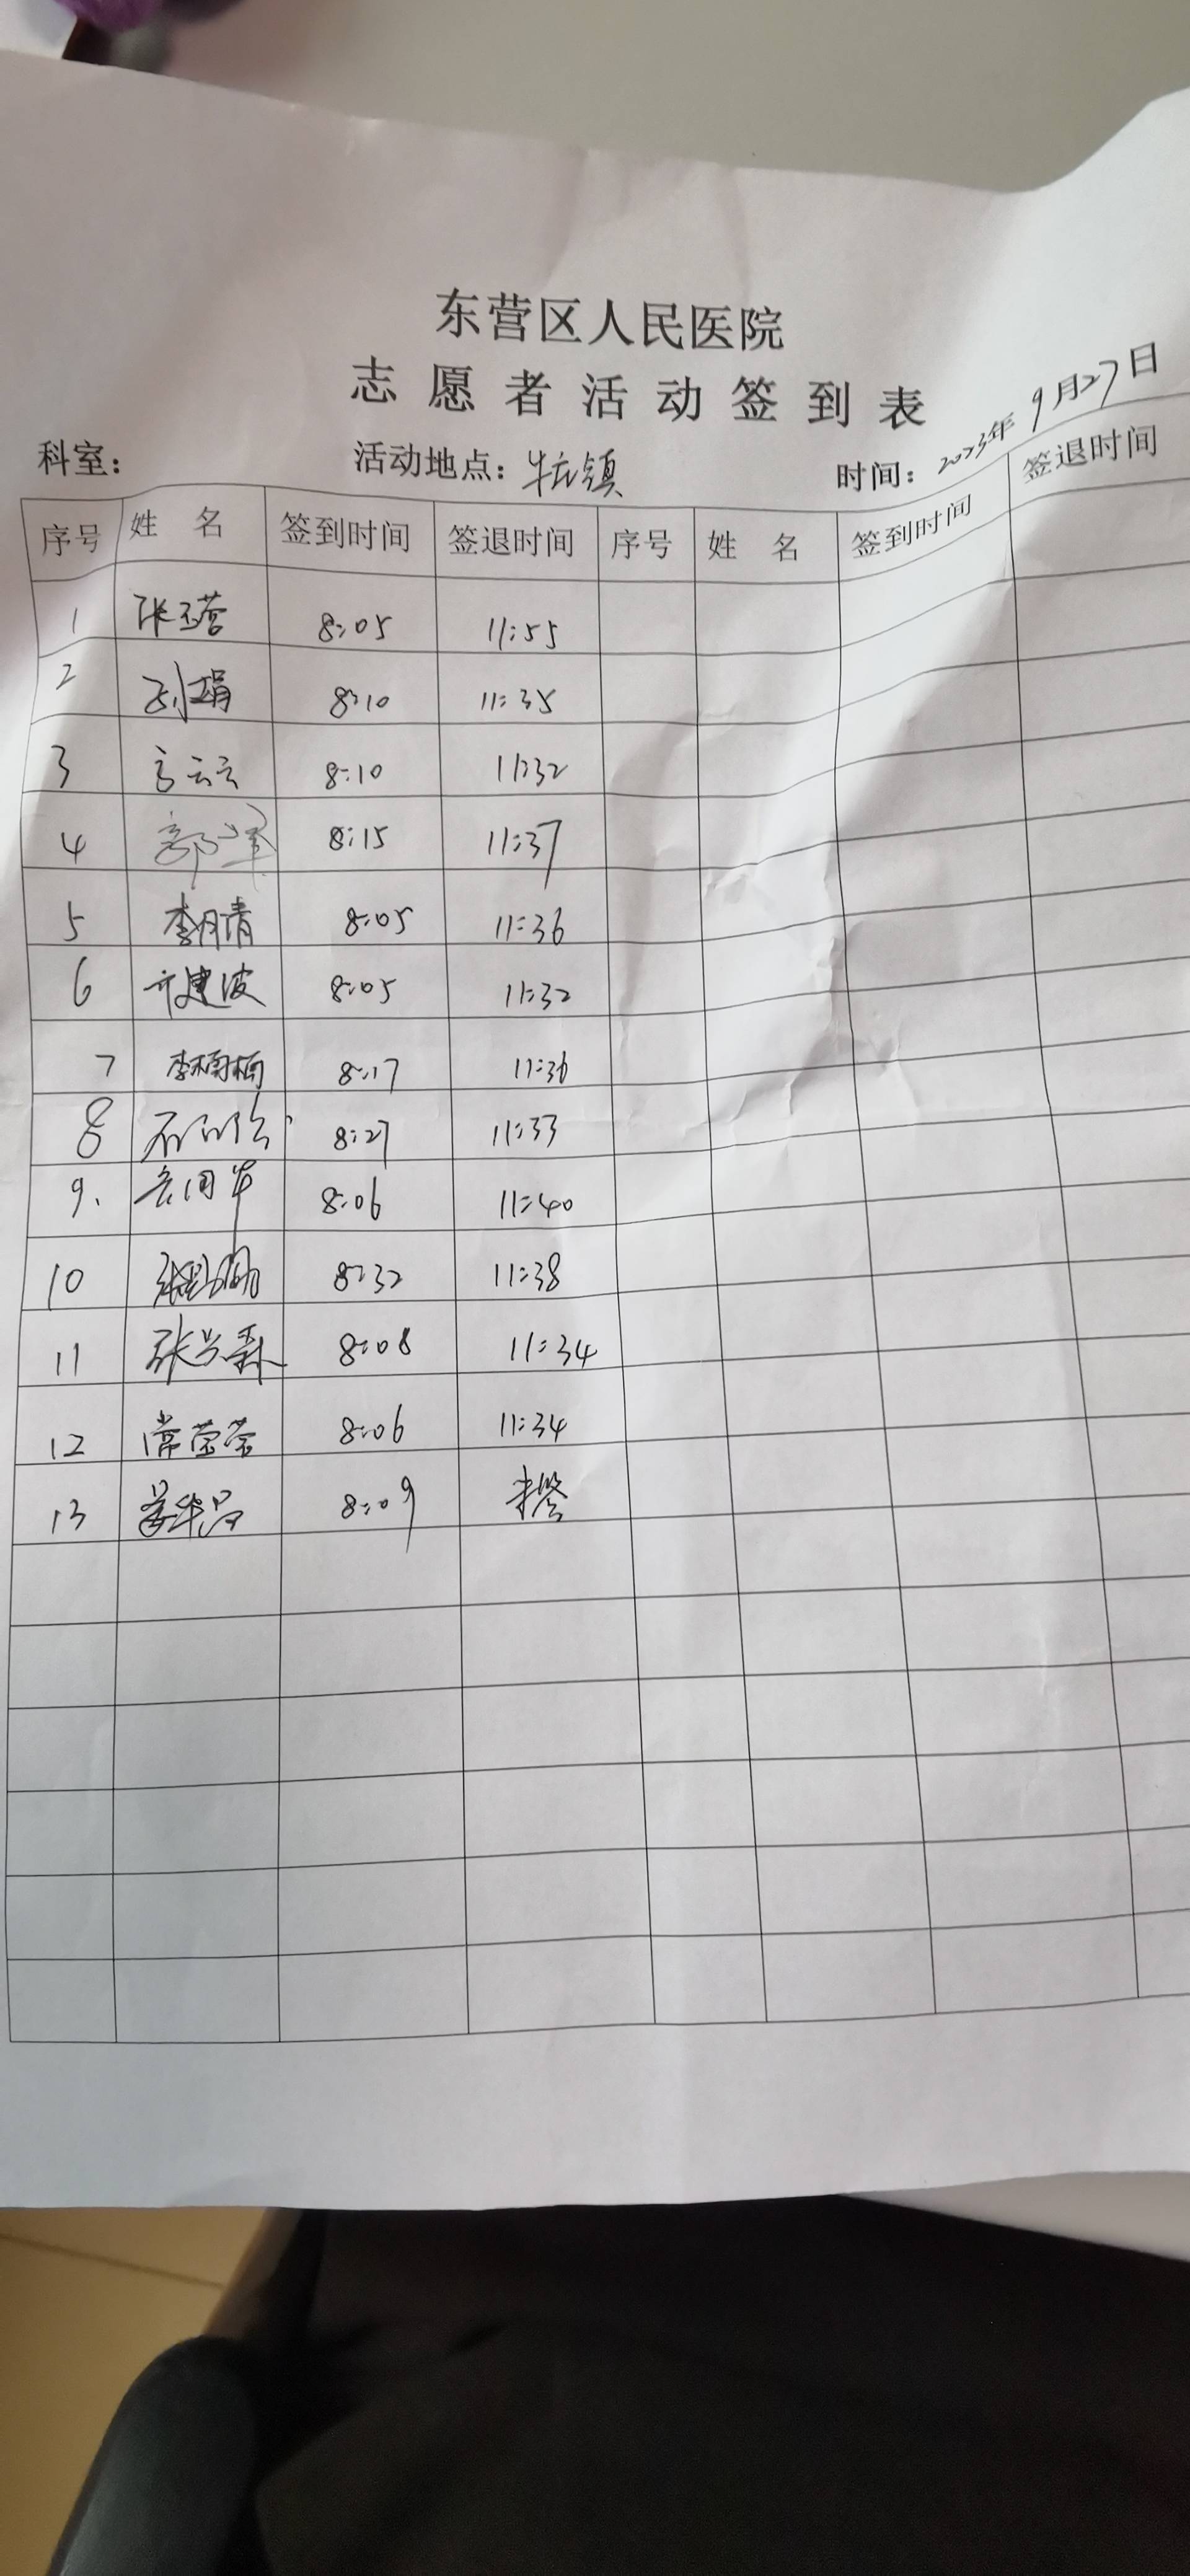 东营区人民医院
志愿者活动签到表
科室： 活动地点：牛庄镇 时间：2023年9月27日
序号 姓名 签到时间 签退时间 序号 姓名 签到时间 签退时间
1 张玉营 8:05 11:55
2 孙娟 8:10 11:35
3 高云云 8:10 11:32
4 8:15 11:37
5 李月清 8:05 11:36
6 建波 8:05 11:32
7 李楠楠 8:17 11:36
8 8:27 11:33
9. 8:06 11:40
10 8:32 11:38
11 张兴森 8:08 11:34
12 常荣荣 8:06 11:34
13 8:09 未签